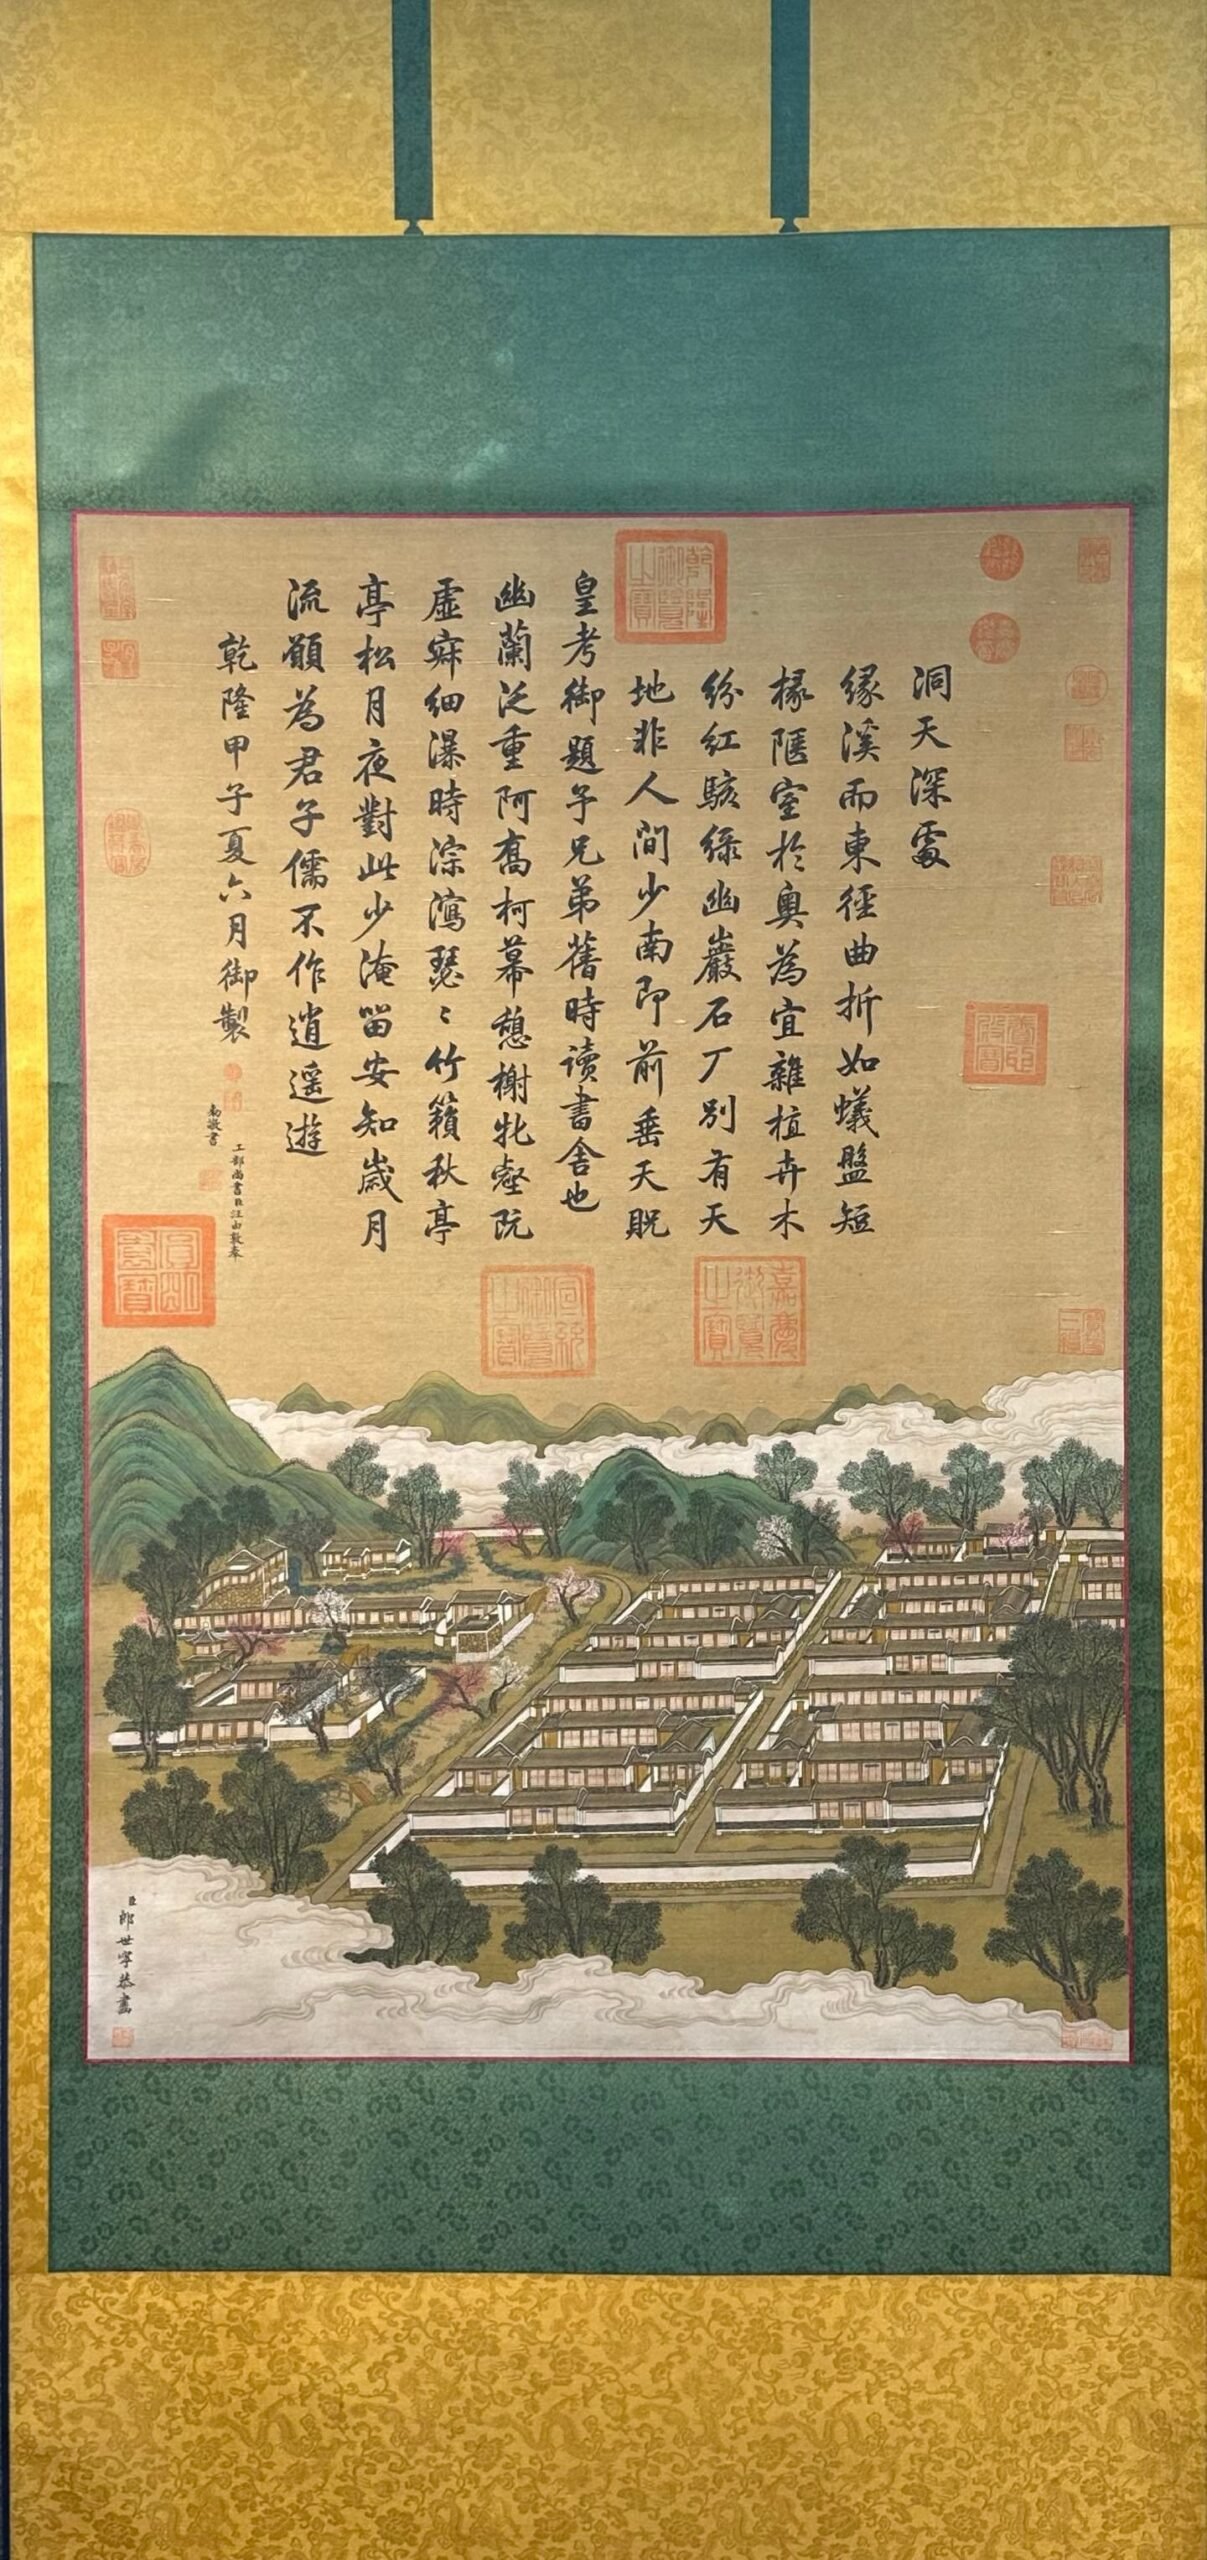 洞天深處
緣溪而東徑曲折如蟻盤短
椽陋室於奧為宜雜植卉木
紛紅駭綠幽巖石厂別有天
地非人間少南即前垂天貺
皇考御題予兄弟舊時读書舍也
幽蘭泛重阿喬柯幕憩榭牝壑阮
虛寂細瀑時淙瀉瑟〻竹籟秋亭
亭松月夜對此少淹留安知歲月
流願為君子儒不作逍遥遊
乾隆甲子夏六月御製
工部尚書臣汪由敦奉
勅敬書
乾隆御覽之寶
嘉慶御覽之寶
宣統御覽之寶
臣郎世寧恭畫